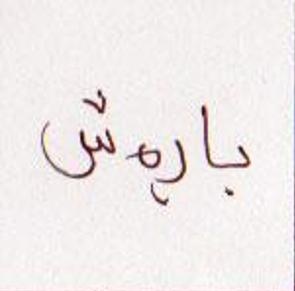 بارِەش